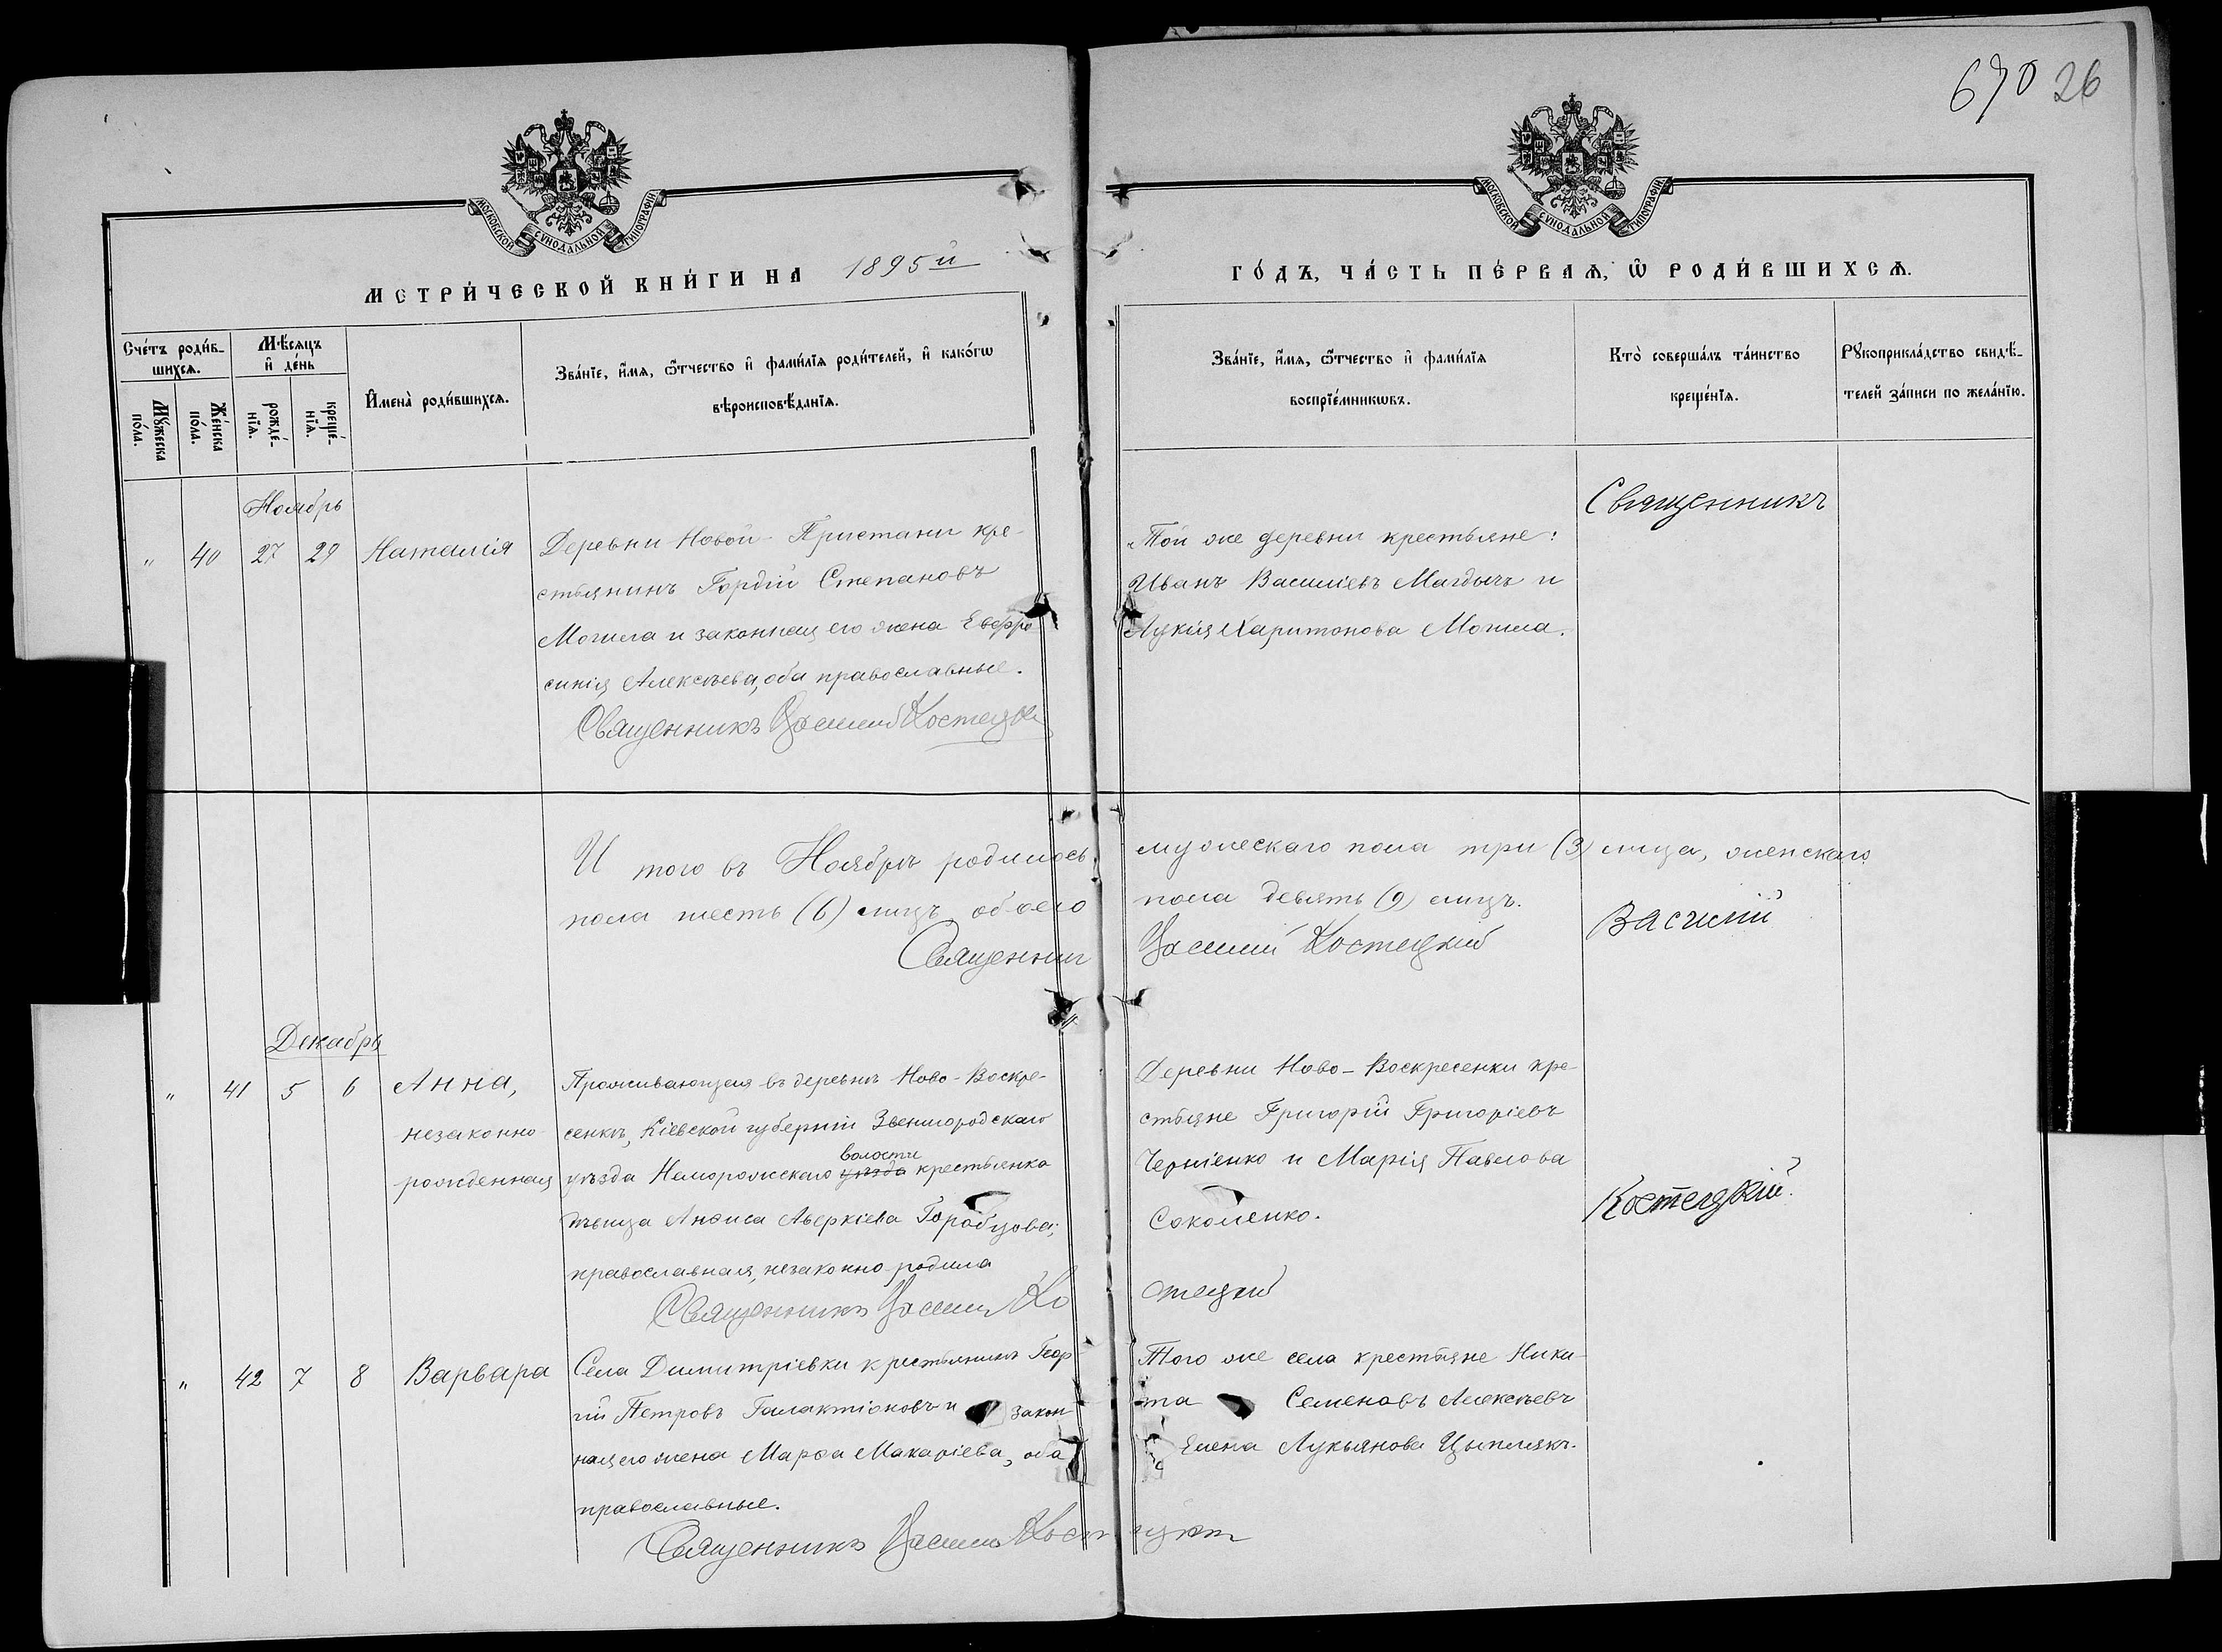 670 26
МОСКОВСКОЙ СѴНОДАЛЬНОЙ ТИПОГРАФІИ
МОСКОВСКОЙ СѴНОДАЛЬНОЙ ТИПОГРАФІИ
МЕТРИ́ЧЕСКОЙ КНИ́ГИ НА 1895й
ГО́ДЪ, ЧА́СТЬ ПЕ́РВАѦ, Ѿ РОДИ́ВШИХСѦ.
Сче́тъ роди́в-
шихсѧ.
Мꙋ́жеска
по́ла.
Же́нска
по́ла.
Мѣ́сяцъ
и҆ де́нь
рожде́-
нїѧ.
креще́-
нїѧ.
И҆мена̀ роди́вшихсѧ.
Зва́нїе, и҆́мѧ, ѻ҆́тчество и҆ фами́лїѧ роди́телей, и҆ како́гѡ
вѣроисповѣ́данїѧ.
Зва́нїе, и҆́мѧ, ѻ҆́тчество и҆ фами́лїѧ
воспрїе́мникѡвъ.
Кто̀ соверша́лъ та́инство
креще́нїѧ.
Рꙋкоприкла́дство свидѣ́-
телей за́писи по жела́нїю.
Ноябрь
" 40 27 29 Наталія
Деревни Новой-Пристани кре-
стьянинъ Гордій Степановъ
Могила и законная его жена Евфро
синія Алексѣева, оба православные.
Священникъ Василій Костецкій
Той же деревни крестьяне:
Иванъ Василіевъ Магдычъ и
Лукія Харитонова Могила.
Священникъ
И того въ Ноябрѣ родилось
мужескаго пола три (3) лица, женскаго
пола шесть (6) лицъ, обоего
пола девять (9) лицъ.
Священник
Василий Костецкій
Василій
Декабрь
" 41 5 6 Анна,
незаконно-
рожденная
Проживающая въ деревнѣ Ново-Воскре-
сенкѣ, Кіевской губерніи Звенигородскаго
уѣзда Неморожскаго уѣзда волости крестьянка
дѣвица Анѳиса Аверкіева Горобцова;
православная, незаконно родила
Священникъ Василій Ко
Деревни Ново-Воскресенки кре-
стьяне Григорій Григоріевъ
Черніенко и Марія Павлова
Соколенко.
стецкій
Костецкій.
" 42 7 8 Варвара
Села Димитріевки крестьянинъ Геор
гій Петровъ Галактіоновъ и закон
ная его жена Марѳа Макаріева, оба
православные.
Священникъ Василій Кост
Того же села крестьяне Ники-
та Семеновъ Алексѣевъ
Елена Лукьянова Цыплякъ.
ецкій